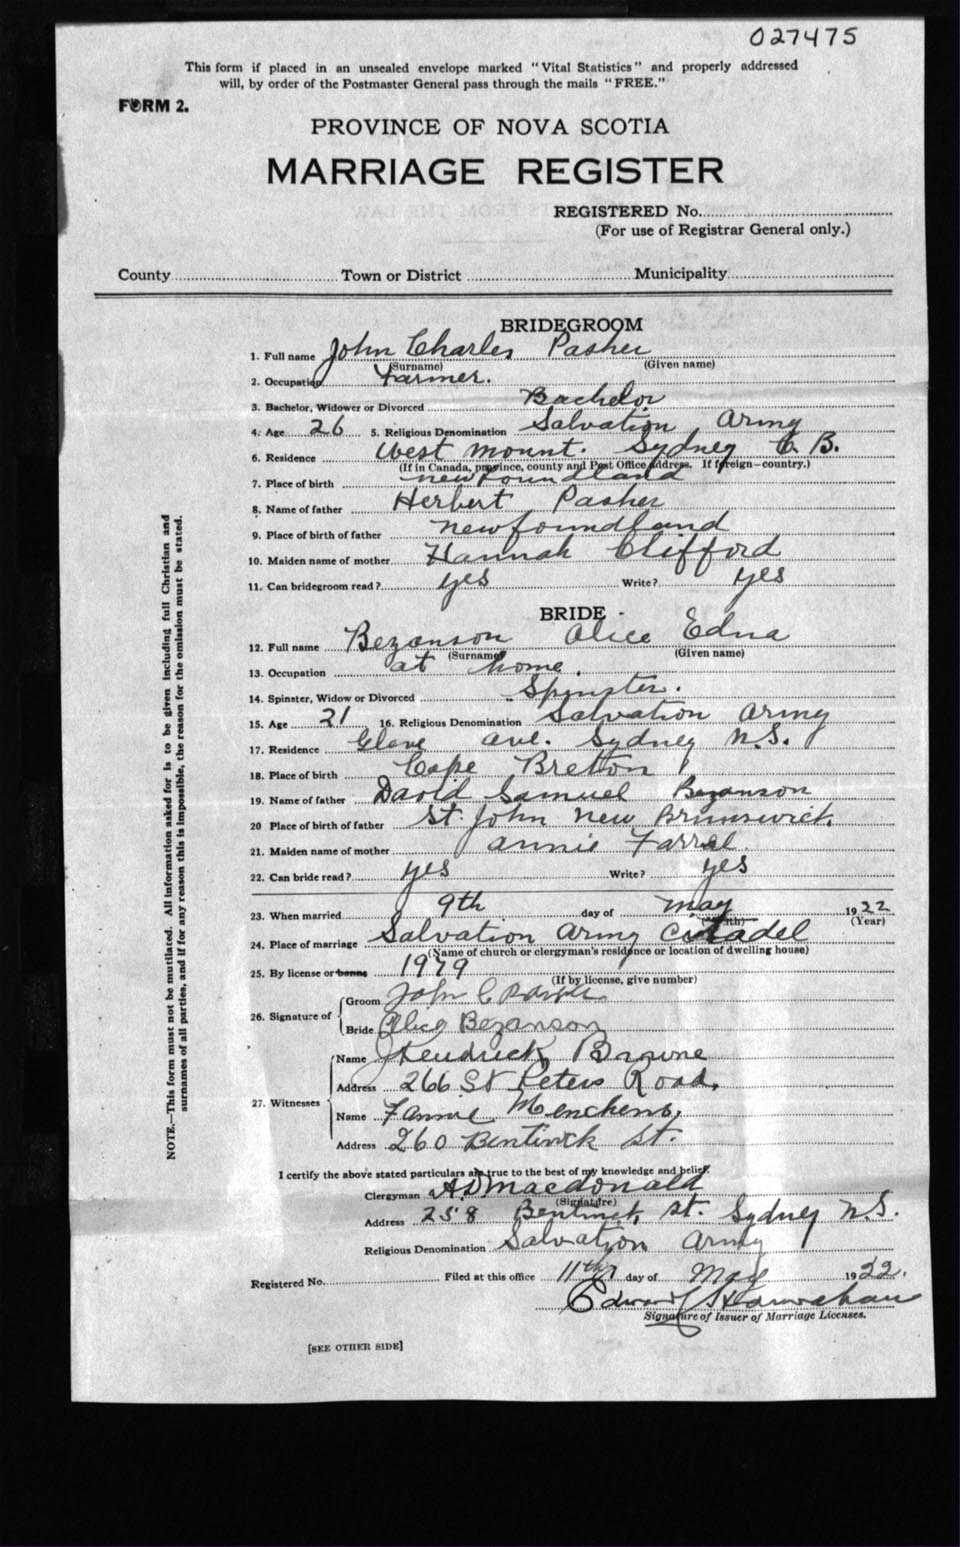 027475
This form if placed in an unsealed envelope marked "Vital Statistics" and properly addressed
will, by order of the Postmaster General pass through the mails "FREE."
FORM 2.
PROVINCE OF NOVA SCOTIA
MARRIAGE REGISTER
REGISTERED No.
(For use of Registrar General only.)
County Town or District Municipality
BRIDEGROOM
1. Full name John Charles Pasher
(Surname) (Given name)
2. Occupation Farmer.
3. Bachelor, Widower or Divorced Bachelor
4. Age 26 5. Religious Denomination Salvation Army
6. Residence West Mount. Sydney C. B.
(If in Canada, province, county and Post Office address. If foreign—country.)
7. Place of birth newfoundland
8. Name of father Herbert Pasher
9. Place of birth of father newfoundland
10. Maiden name of mother Hannah Clifford
11. Can bridegroom read? yes Write? yes
BRIDE
12. Full name Bezanson Alice Edna
(Surname) (Given name)
13. Occupation at home.
14. Spinster, Widow or Divorced Spinster.
15. Age 21 16. Religious Denomination Salvation Army
17. Residence Ave. Sydney N.S.
18. Place of birth Cape Breton
19. Name of father David Samuel Bezanson
20 Place of birth of father St. John New Brunswick.
21. Maiden name of mother Annie Farrel.
22. Can bride read? yes Write? yes
23. When married 9th day of May 1922
(Month) (Year)
24. Place of marriage Salvation Army Citadel
(Name of church or clergyman's residence or location of dwelling house)
25. By license or banns 1979
(If by license, give number)
26. Signature of
Groom John C
Bride Alice Bezanson
27. Witnesses
Name Kendrick Browne
Address 266 St Peters Road.
Name Fannie Menchens,
Address 260 Bentinck St.
I certify the above stated particulars are true to the best of my knowledge and belief.
Clergyman A D Macdonald
(Signature)
Address 258 Bentinck St. Sydney N.S.
Religious Denomination Salvation Army
Registered No. Filed at this office 11th day of May 1922.
Edward
Signature of Issuer of Marriage Licenses.
[SEE OTHER SIDE]
NOTE.—This form must not be mutilated. All information asked for is to be given including full Christian and
surnames of all parties, and if for any reason this is impossible, the reason for the omission must be stated.